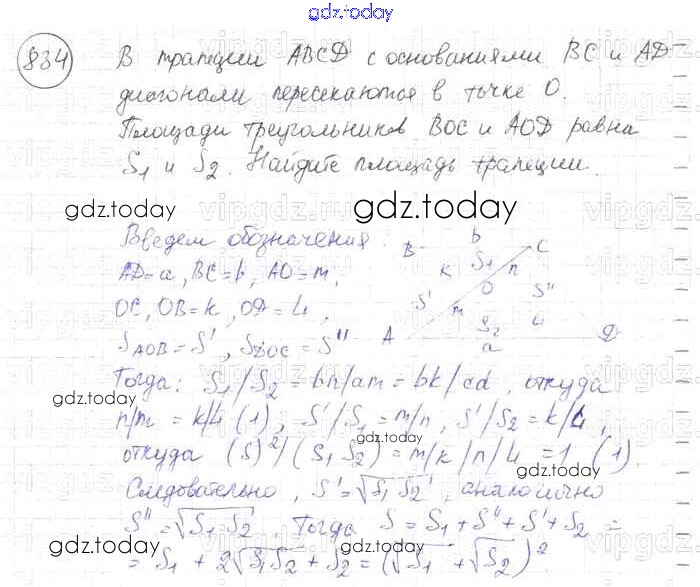 gdz.today
834
В трапеции ABCD с основаниями BC и AD
диагонали пересекаются в точке O.
Площади треугольников BOC и AOD равна
S1 и S2. Найдите площадь трапеции.
gdz.today
gdz.today
Введем обозначения:
AD=a, BC=b, AO=m,
OC, OB=k, OD=4,
S AOB = S', S DOC = S''
B b C
k S1 n
O
S' S''
m 4
S2
A a D
Тогда: S1/S2 = bn/am = bk/cd, откуда
n/m = k/4 (1), S'/S1 = m/n, S'/S2 = k/4,
откуда (S)²/(S1 S2) = m/k/n/4 = 1 (1)
gdz.today
gdz.today
Следовательно, S' = √S1 S2, аналогично
S'' = √S1·S2. Тогда S = S1 + S'' + S' + S2 =
= S1 + 2√S1S2 + S2 = (√S1 + √S2)²
gdz.today
gdz.today